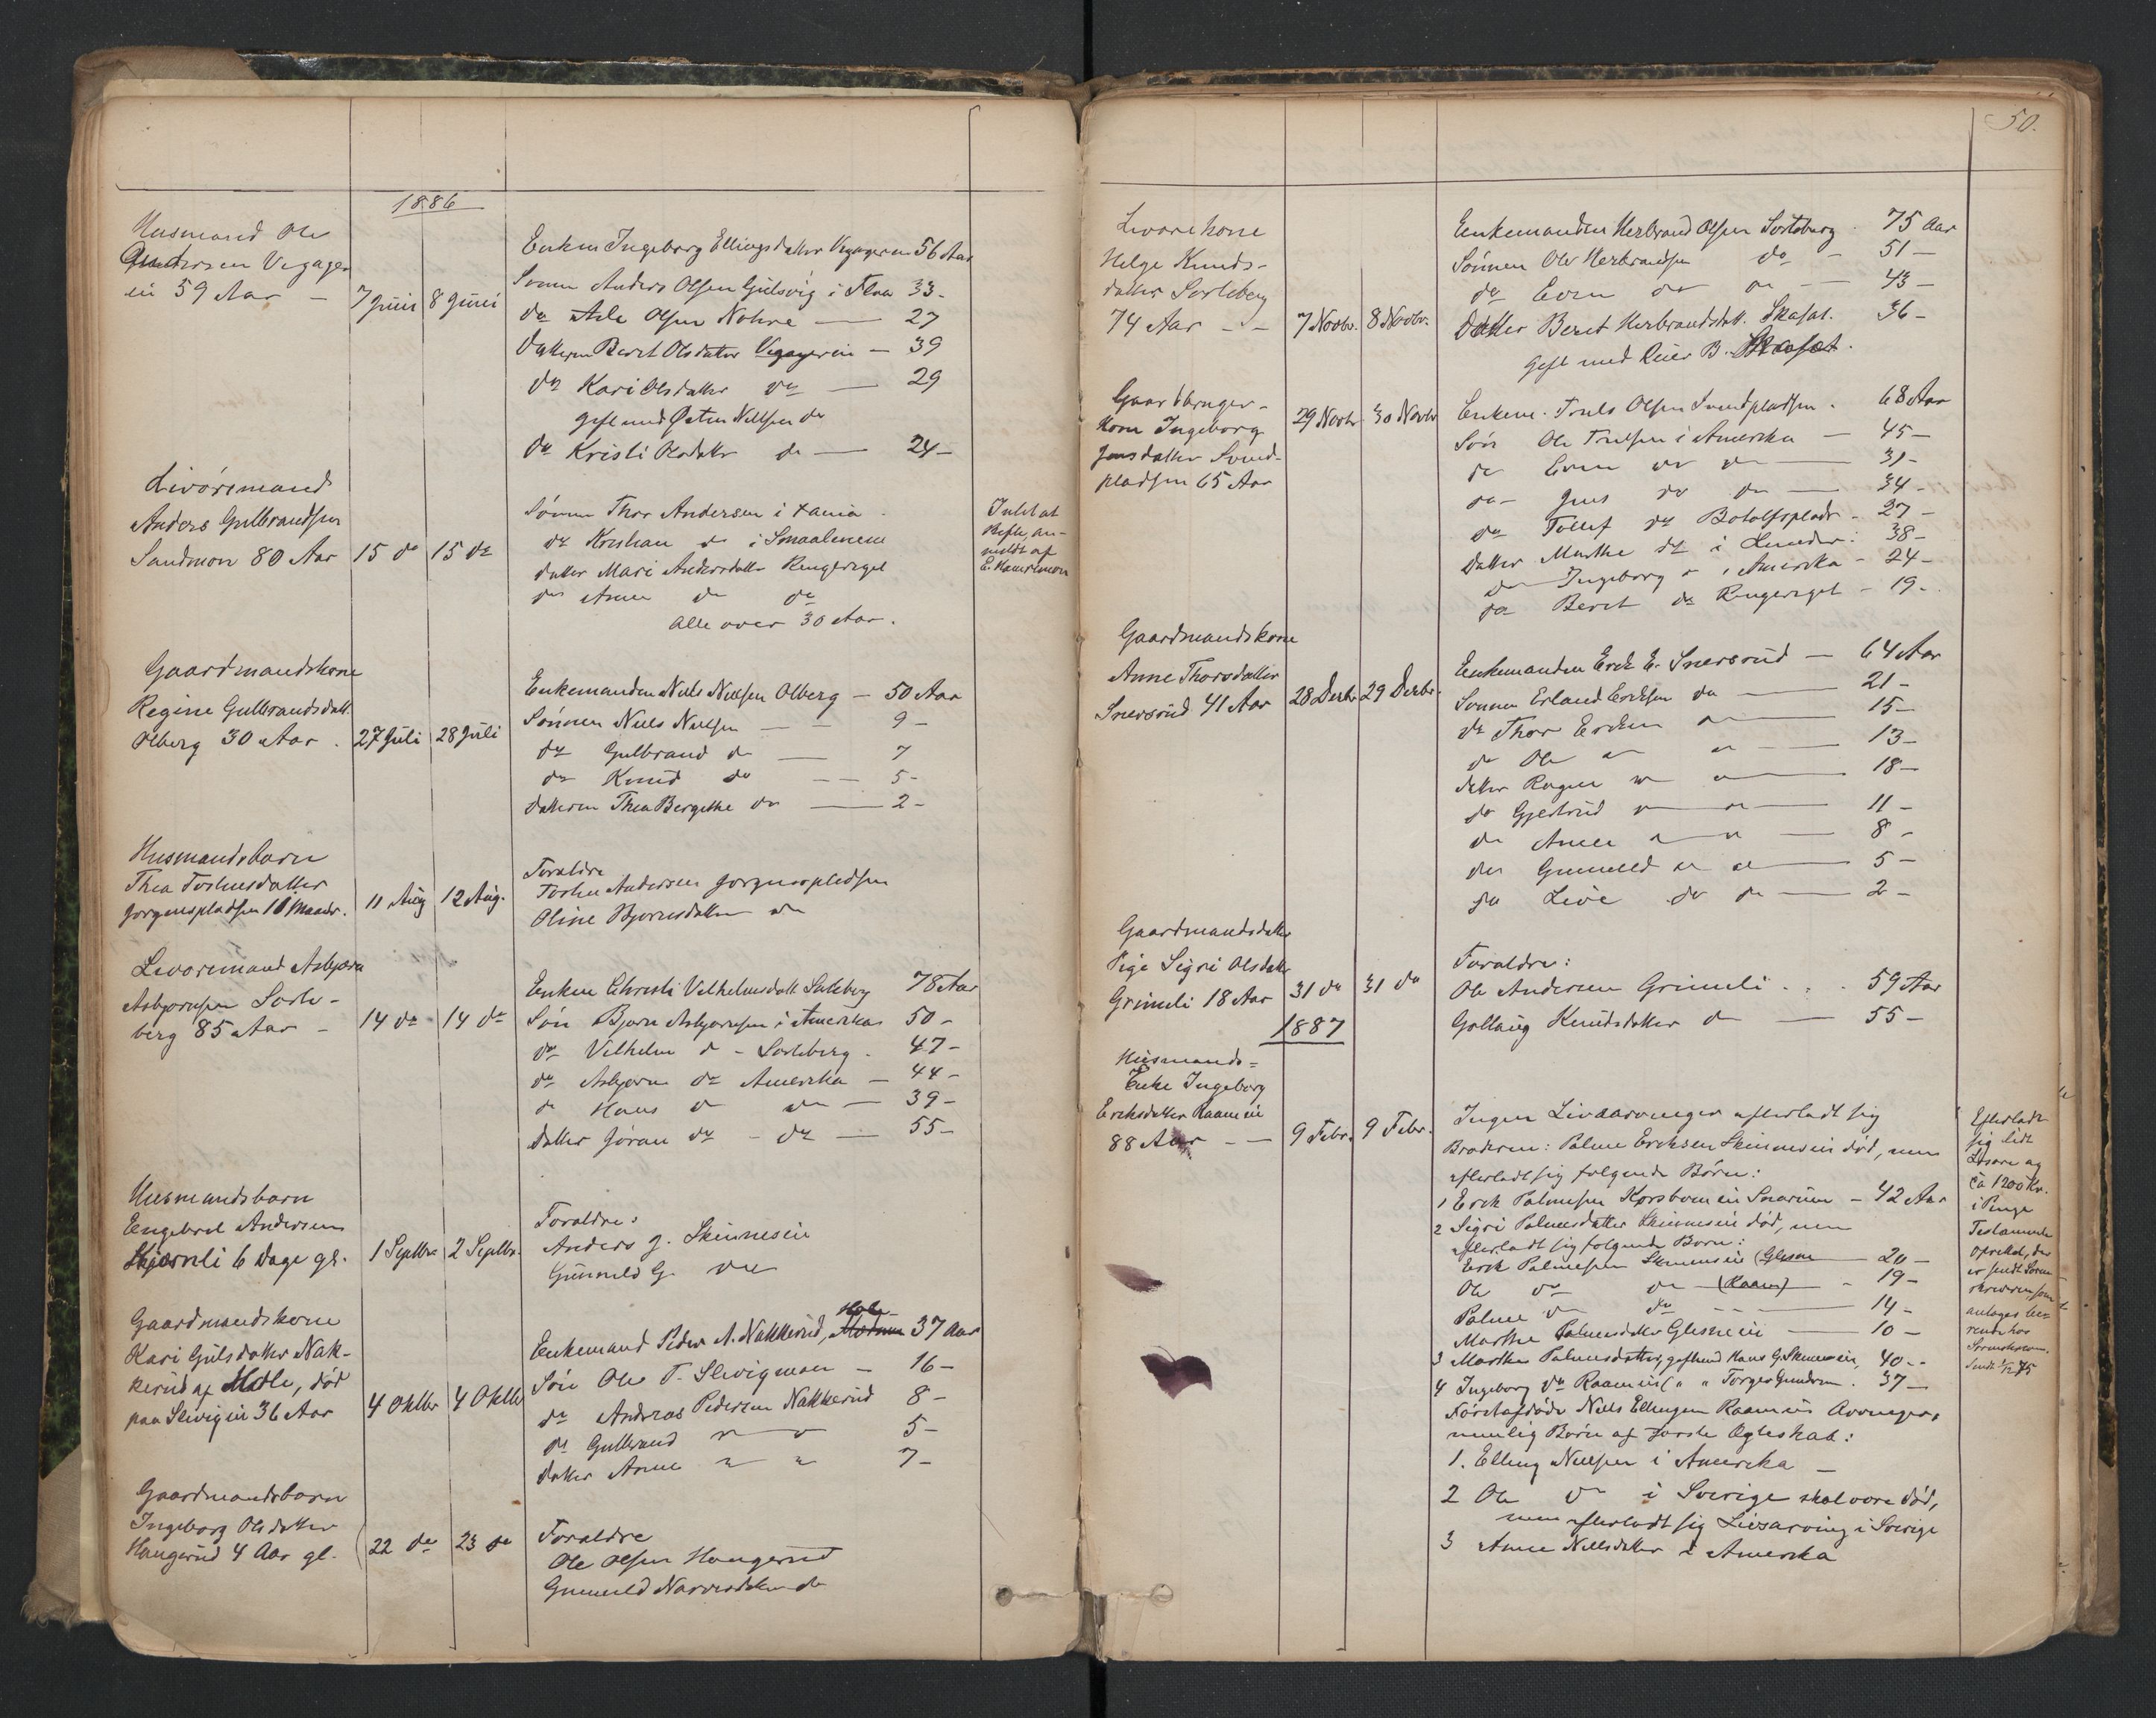 1886
Husmand Ole
Andersen Vegager-
ein 59 Aar —
7 Juni
8 Juni
Enken Ingeborg Ellingsdatter Vegagerein 56 Aar
Sønnen Anders Olsen Gulsvig i Flaa 33-
do Atle Olsen Nohre — 27
Datteren Beret Olsdatter Vegagerein — 39
do Kari Olsdatter do — 29
gift med Østen Nilsen do
do Kristi Olsdatter do — 24-
Livøremand
Anders Gulbrandsen
Sandmon 80 Aar
15 do
15 do
Sønnen Thor Andersen i Xania
do Kristian do i Smaalenene
datter Mari Andersdatter Ringeriget
do Anne do do
alle over 30 Aar.
Intet at
an-
meldt af
E.
Gaardmandskone
Regine Gulbrandsdatt.
Olberg 30 Aar.
27 Juli
28 Juli
Enkemanden Niels Nielsen Olberg — 50 Aar
Sønnen Niels Nielsen — 9-
do Gulbrand do — 7
do Knud do — 5-
datteren Thea Bergethe do — 2-
Husmandsbarn
Thea Torstensdatter
Jørgenspladsen 10 Maander.
11 Aug
12 Aug.
Forældre
Torsten Andersen Jørgenspladsen
Oline Bjørnsdatter do
Livøremand Asbjørn
Asbjørnsen Sorte-
berg 85 Aar —
14 do
14 do
Enken Christi Vilhelmsdatt. Sorteberg 78 Aar
Søn Bjørn Asbjørnsen i Amerika 50-
do Vilhelm do - Sorteberg - 47-
do Asbjørn do Amerika — 44-
do Hans do do — 39-
datter Jøran do - do — 55-
Husmandsbarn
Engebret Andersen
Skjærnli 6 Dage gl.
1 Septbr.
2 Septbr.
Forældre:
Anders G. Skinnesein
Gunnild G. do
Gaardmandskone
Kari Gulsdatter Nak-
kerud af Hole, død
paa Slevigein 36 Aar
4 Oktbr
4 Oktbr
Enkemand Peder A. Nakkerud, Hole 37 Aar
Søn Ole T. Slevigmoen — 16-
do Andreas Pedersen Nakkerud 8-
do Gulbrand do do 5-
datter Anne do do 7-
Gaardmandsbarn
Ingeborg Olsdatter
Haugerud 4 Aar gl.
22 do
23 do
Forældre
Ole Olsen Haugerud
Gunnild Narvesdatter do
50.
Livørekone
Helge Knuds-
datter Sorteberg
74 Aar - -
7 Novbr.
8 Novbr.
Enkemanden Herbrand Olsen Sorteberg 75 Aar
Sønnen Ole Herbrandsen do - 51-
do Even do do — 43-
Datter Beret Herbrandsdatt. Skasat. 36-
gift med B. Skasat.
Gaardbruger-
kone Ingeborg
Jensdatter Svend-
pladsen 65 Aar
29 Novbr
30 Novbr
Enkem. Truls Olsen Svendpladsen. 68 Aar
Søn Ole Trulsen i Amerika — 45-
do Even do do — 31-
do Jens do do — 34-
do Tollef do Botolfsplads - 27-
Datter Marthe do i Lunder: 38-
do Ingeborg do i Amerika - 24-
do Beret do Ringeriget - 19-
Gaardmandskone
Anne Thorsdatter
Snersrud 41 Aar
28 Decbr
29 Decbr.
Enkemanden Erik E. Snersrud — 64 Aar
Sønnen Erland Eriksen do — 21-
do Thor Eriksen do — 15-
do Ole do do — 13-
datter Ragne do do — 18-
do Gjertrud do do — 11-
do Anne do do — 8-
do Gunnild do do — 5-
do Live do do — 2-
Gaardmandsdatter
Pige Sigri Olsdatter
Grimeli 18 Aar
31 do
31 do
Forældre:
Ole Andersen Grimeli . . . 59 Aar
Gollaug Knudsdatter do — 55-
1887
Husmands-
Enke Ingeborg
Eriksdatter Raamein
88 Aar - —
9 Febr.
9 Febr.
Ingen Livsarvinger efterladt sig
Broderen: Palme Eriksen Skinnesein død, men
efterladt sig følgende Børn:
1 Erik Palmesen Korsbøenein Snarum — 42 Aar
2 Sigri Palmesdatter Skinnesein død, men
efterladt sig følgende Børn:
Erik Palmesen Skinnesein (Glesne — 20-
Ole do do (Raaen) - 19-
Palme do do — 14-
Marthe Palmesdatter Glesneein — 10-
3 Marthe Palmesdatter, gift med Hans G. Skinnesein, 40--
4 Ingeborg do Raamein (" " Torger Gundersen. 37-
Førstafdøde Niels Ellingsen Raameins Arvinger,
nemlig Børn af første Ægteskab:
1. Elling Nielsen i Amerika —
2 Ole do i Sverige skal være død,
men efterladt sig Livsarving i Sverige
3 Anne Nilsdatter i Amerika
Efterladt
sig lidt
Løsøre og
ca 1200 Kr.
i Penge
Testamente
oprettet, der
er sendt Soren-
skriveren, som
antages bero-
rende hos
Sorenskriveren.